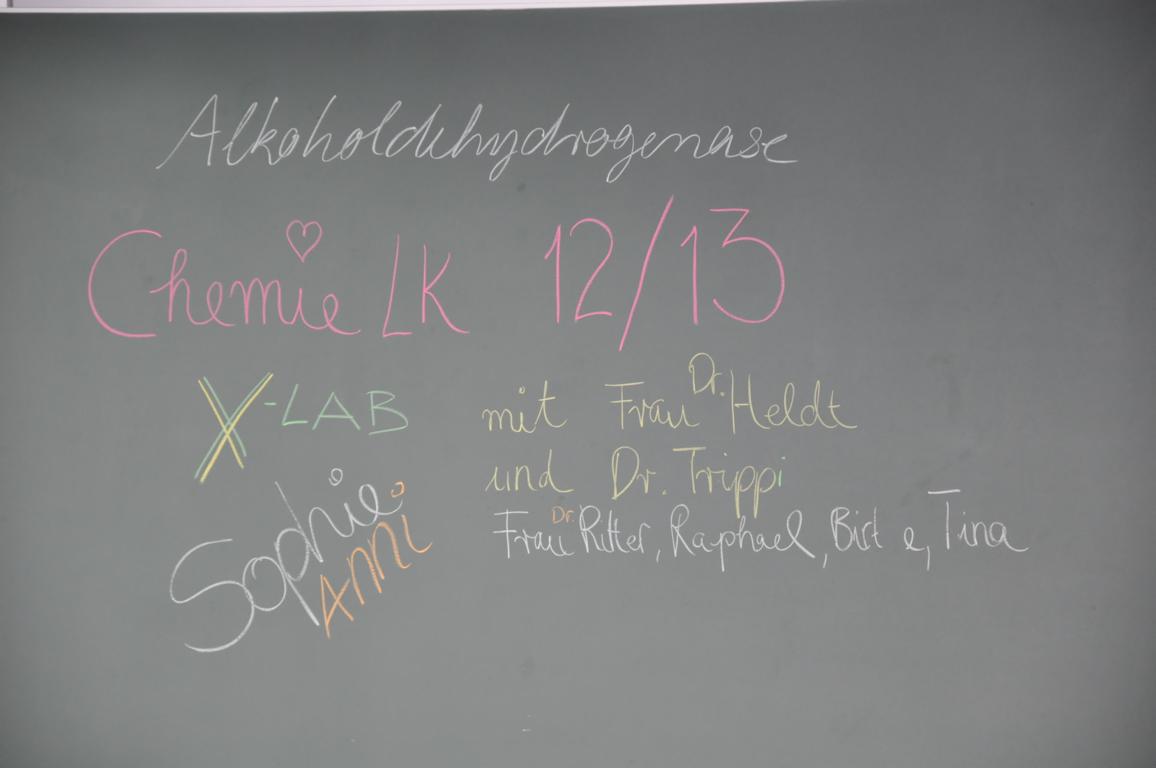 Alkoholdehydrogenase
Chemie LK 12/13
X-LAB mit Frau Dr. Heldt
und Dr. Trippi
Frau Dr. Ritter, Raphael, Birte, Tina
Sophie
Anni